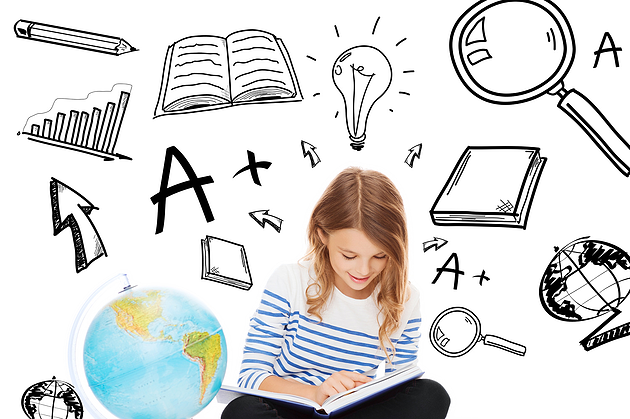 A
A+
A+